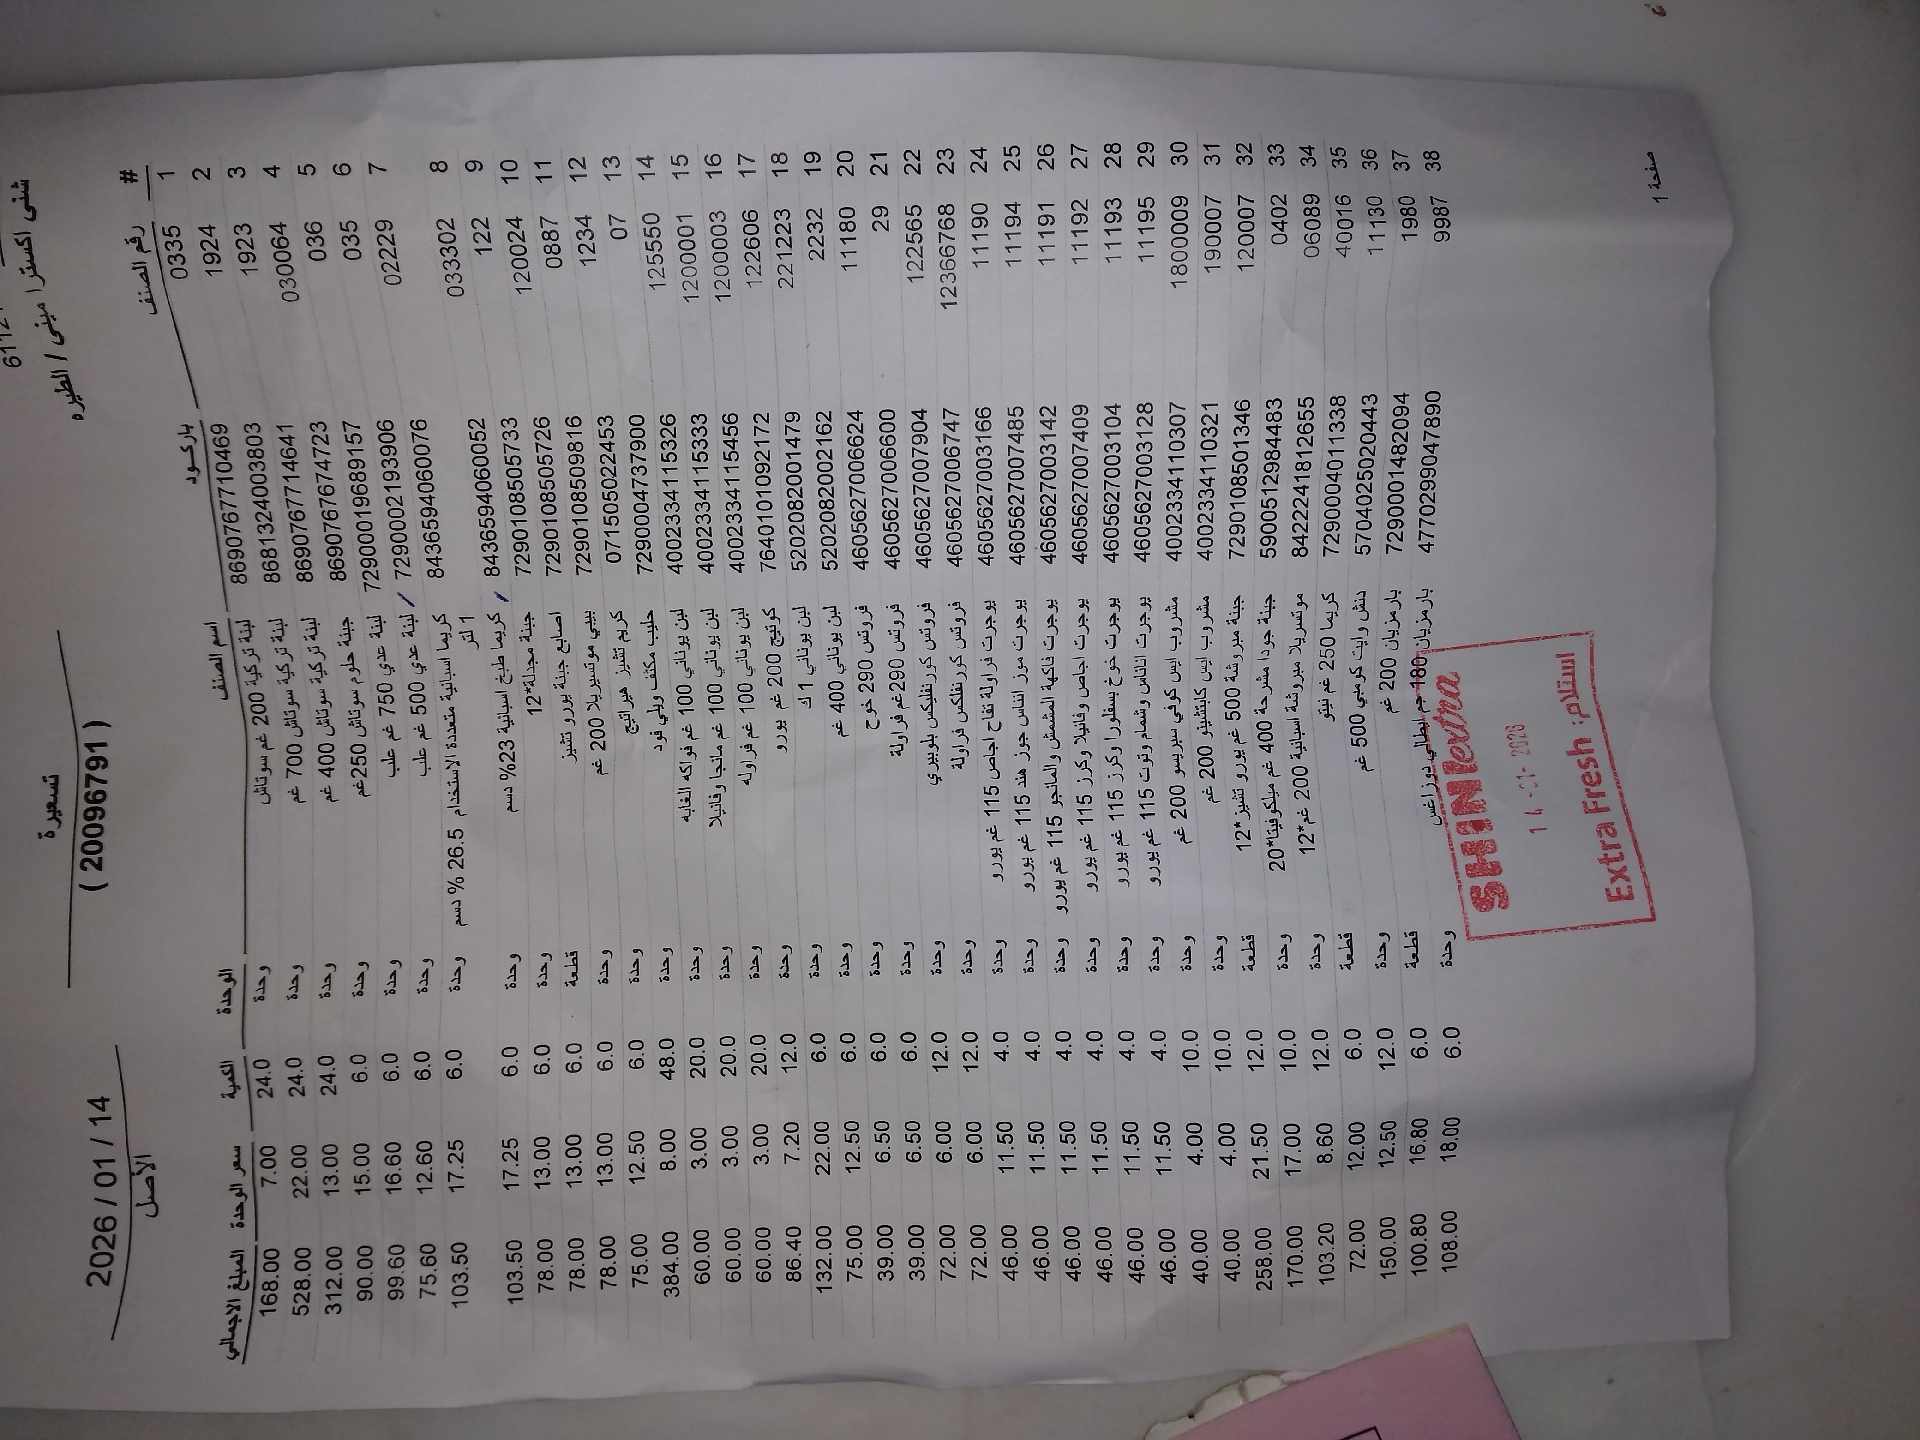 6112
شني اكسترا ميني / الطيره
تسعيرة
( 20096791 )
2026 / 01 / 14
الأصل
# رقم الصنف باركود اسم الصنف الوحدة الكمية سعر الوحدة المبلغ الاجمالي
1 0335 8690767710469 لبنة تركية 200 غم سوتاش وحدة 24.0 7.00 168.00
2 1924 8681324003803 لبنة تركية سوتاش 700 غم وحدة 24.0 22.00 528.00
3 1923 8690767714641 لبنة تركية سوتاش 400 غم وحدة 24.0 13.00 312.00
4 030064 8690767674723 جبنة حلوم سوتاش 250غم وحدة 6.0 15.00 90.00
5 036 7290019689157 لبنة عدي 750 غم علب وحدة 6.0 16.60 99.60
6 035 7290002193906 لبنة عدي 500 غم علب وحدة 6.0 12.60 75.60
7 02229 8436594060076 كريما اسبانية متعددة الاستخدام 26.5 % دسم وحدة 6.0 17.25 103.50
1 لتر
8 033302 8436594060052 كريما طبخ اسبانية 23% دسم وحدة 6.0 17.25 103.50
9 122 7290108505733 جبنة مجدلة*12 وحدة 6.0 13.00 78.00
10 120024 7290108505726 اصابع جبنة يورو تشيز قطعة 6.0 13.00 78.00
11 0887 7290108509816 بيبي موتسيريلا 200 غم وحدة 6.0 13.00 78.00
12 1234 071505022453 كريم تشيز هيراتيج وحدة 6.0 12.50 75.00
13 07 7290004737900 حليب مكثف ويلي فود وحدة 48.0 8.00 384.00
14 125550 4002334115326 لبن يوناني 100 غم فواكه الغابه وحدة 20.0 3.00 60.00
15 1200001 4002334115333 لبن يوناني 100 غم مانجا وفانيلا وحدة 20.0 3.00 60.00
16 1200003 4002334115456 لبن يوناني 100 غم فراوله وحدة 20.0 3.00 60.00
17 122606 7640101092172 كوتيج 200 غم يورو وحدة 12.0 7.20 86.40
18 221223 5202082001479 لبن يوناني 1 ك وحدة 6.0 22.00 132.00
19 2232 5202082002162 لبن يوناني 400 غم وحدة 6.0 12.50 75.00
20 11180 4605627006624 فروتس 290 خوخ وحدة 6.0 6.50 39.00
21 29 4605627006600 فروتس 290غم فراولة وحدة 6.0 6.50 39.00
22 122565 4605627007904 فروتس كورنفليكس بلوبيري وحدة 12.0 6.00 72.00
23 12366768 4605627006747 فروتس كورنفلكس فراولة وحدة 12.0 6.00 72.00
24 11190 4605627003166 يوجرت فراولة تفاح اجاص 115 غم يورو وحدة 4.0 11.50 46.00
25 11194 4605627007485 يوجرت موز انناس جوز هند 115 غم يورو وحدة 4.0 11.50 46.00
26 11191 4605627003142 يوجرت فاكهة المشمش والمانجو 115 غم يورو وحدة 4.0 11.50 46.00
27 11192 4605627007409 يوجرت اجاص وفانيلا وكرز 115 غم يورو وحدة 4.0 11.50 46.00
28 11193 4605627003104 يوجرت خوخ بسفلورا وكرز 115 غم يورو وحدة 4.0 11.50 46.00
29 11195 4605627003128 يوجرت اناناس وشمام وتوت 115 غم يورو وحدة 4.0 11.50 46.00
30 1800009 4002334110307 مشروب ايس كوفي سبريسو 200 غم وحدة 10.0 4.00 40.00
31 190007 4002334110321 مشروب ايس كابتشينو 200 غم وحدة 10.0 4.00 40.00
32 120007 7290108501346 جبنة مبروشة 500 غم يورو تشيز*12 قطعة 12.0 21.50 258.00
33 0402 5900512984483 جبنة جودا مشرحة 400 غم ميلكوفيتا*20 وحدة 10.0 17.00 170.00
34 06089 8422241812655 موتسريلا مبروشة اسبانية 200 غم*12 وحدة 12.0 8.60 103.20
35 40016 7290004011338 كريما 250 غم نيتو قطعة 6.0 12.00 72.00
36 11130 5704025020443 دنش وايت كومبي 500 غم وحدة 12.0 12.50 150.00
37 1980 7290001482094 بارمزيان 200 غم قطعة 6.0 16.80 100.80
38 9987 4770299047890 بارمزيان 180 جم ايطالي دوزاغس وحدة 6.0 18.00 108.00
SHINIextra
14 -01- 2026
Extra Fresh :استلام
صفحة 1